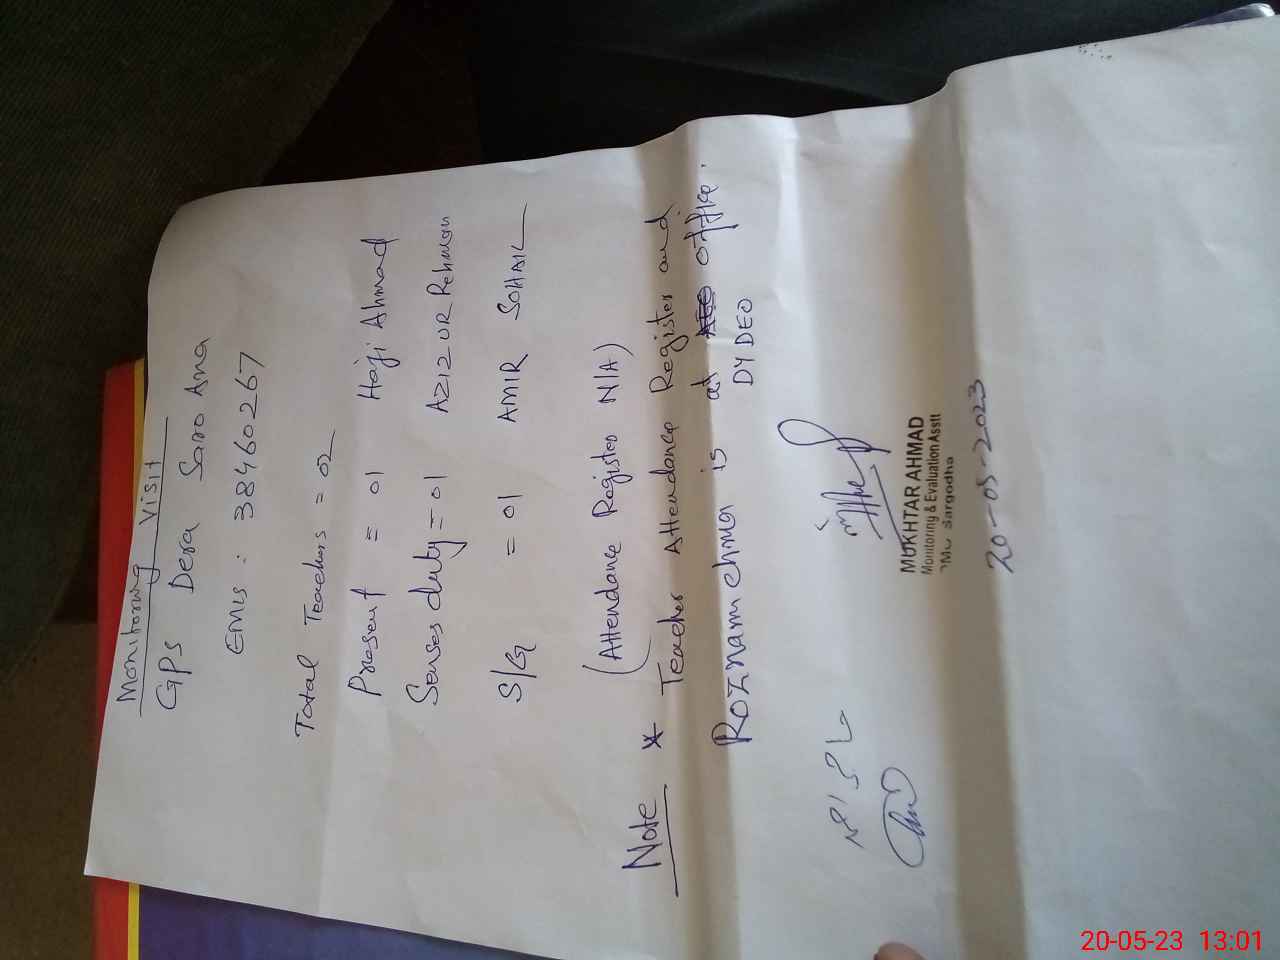 Monitoring Visit
GPS Dera Saro Ana
EMIS : 38460267
Total Teachers = 02
Present = 01 Haji Ahmad
Senses duty = 01 AZIZ UR Rehman
S/G = 01 AMIR SOHAIL
(Attendance Register N/A)
Note * Teacher Attendance Register and
Roznamcha is at AEO office.
DY DEO
MUKHTAR AHMAD
Monitoring & Evaluation Asstt
Sargodha
20-05-2023
20-05-23 13:01